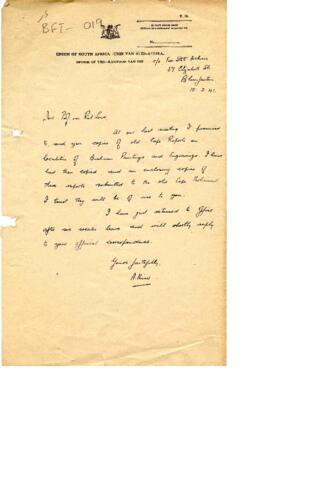 BFI-019
UNION OF SOUTH AFRICA. UNIE VAN SUID-AFRIKA.
OFFICE OF THE—KANTOOR VAN DIE
c/o
Elizabeth St.
Bloemfontein
10.2.41.
Dear Prof van Riet Lowe
At our last meeting I promised
to send you copies of old Cape Reports on
localities of Bushman Paintings and Engravings. I have
had them copied and am enclosing copies of
these reports submitted to the old Cape Parliament
I trust they will be of use to you.
I have just returned to Office
after six weeks leave and will shortly reply
to your official correspondence.
Yours faithfully,